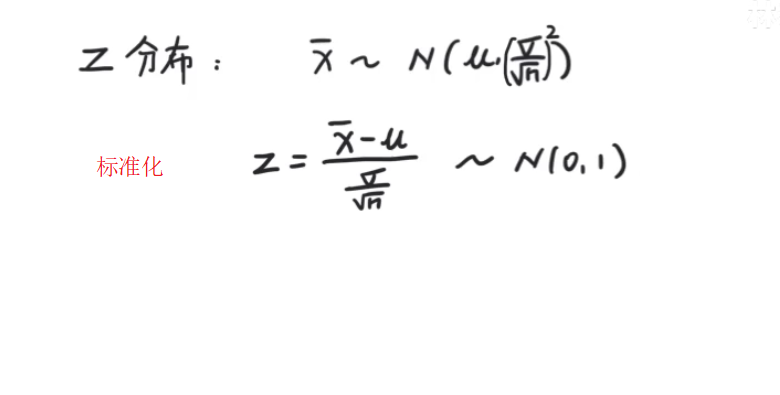 Z 分布： x̄ ~ N(μ, (σ/√n)²)
标准化 Z = (x̄ - μ) / (σ/√n) ~ N(0, 1)